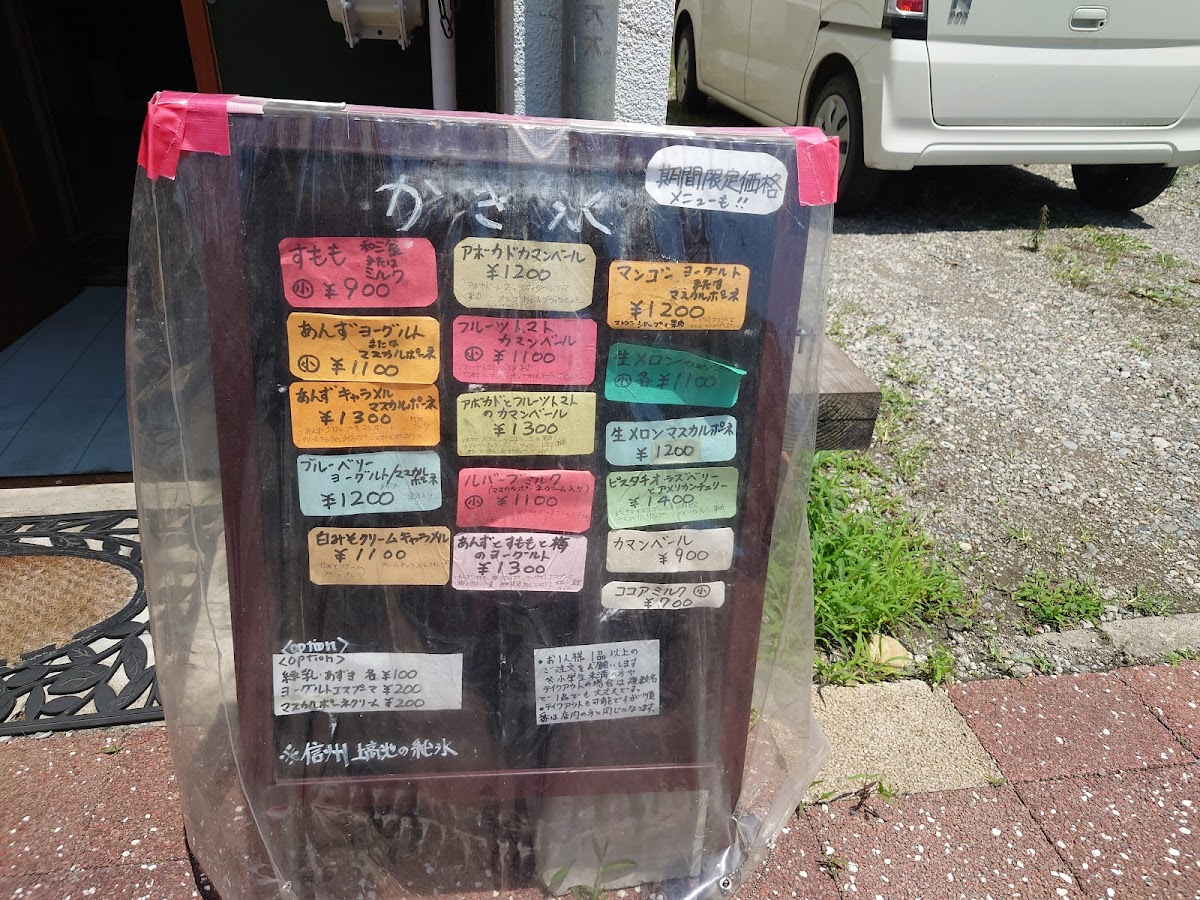 かき氷
期間限定価格
メニューも!!
すもも 和三盆
または
ミルク
小 ¥900
あんずヨーグルト
または
マスカルポーネ
小 ¥1100
あんずキャラメル
マスカルポーネ
¥1300
ブルーベリー
ヨーグルト/マスカルポーネ
¥1200
白みそクリームキャラメル
¥1100
アボカドカマンベール
¥1200
フルーツトマト
カマンベール
小 ¥1100
アボカドとフルーツトマト
のカマンベール
¥1300
ルバーブミルク
(マスカルポーネクリーム入り)
小 ¥1100
あんずとすももと梅
のヨーグルト
¥1300
マンゴー ヨーグルト
または
マスカルポーネ
¥1200
生メロン
小 各¥1100
生メロンマスカルポーネ
¥1200
ピスタチオラズベリー
とアメリカンチェリー
¥1400
カマンベール
¥900
ココアミルク 小
¥700
<option>
<option>
練乳・あずき 各¥100
ヨーグルトエスプーマ ¥200
マスカルポーネクリーム ¥200
※信州上高地の純氷
•お1人様1品以上の
ご注文をお願いします
小学生未満の方や
テイクアウトの場合は複数名
で1品でも大丈夫です。
•テイクアウトも可能ですが順
番は店内の方と同じになります。